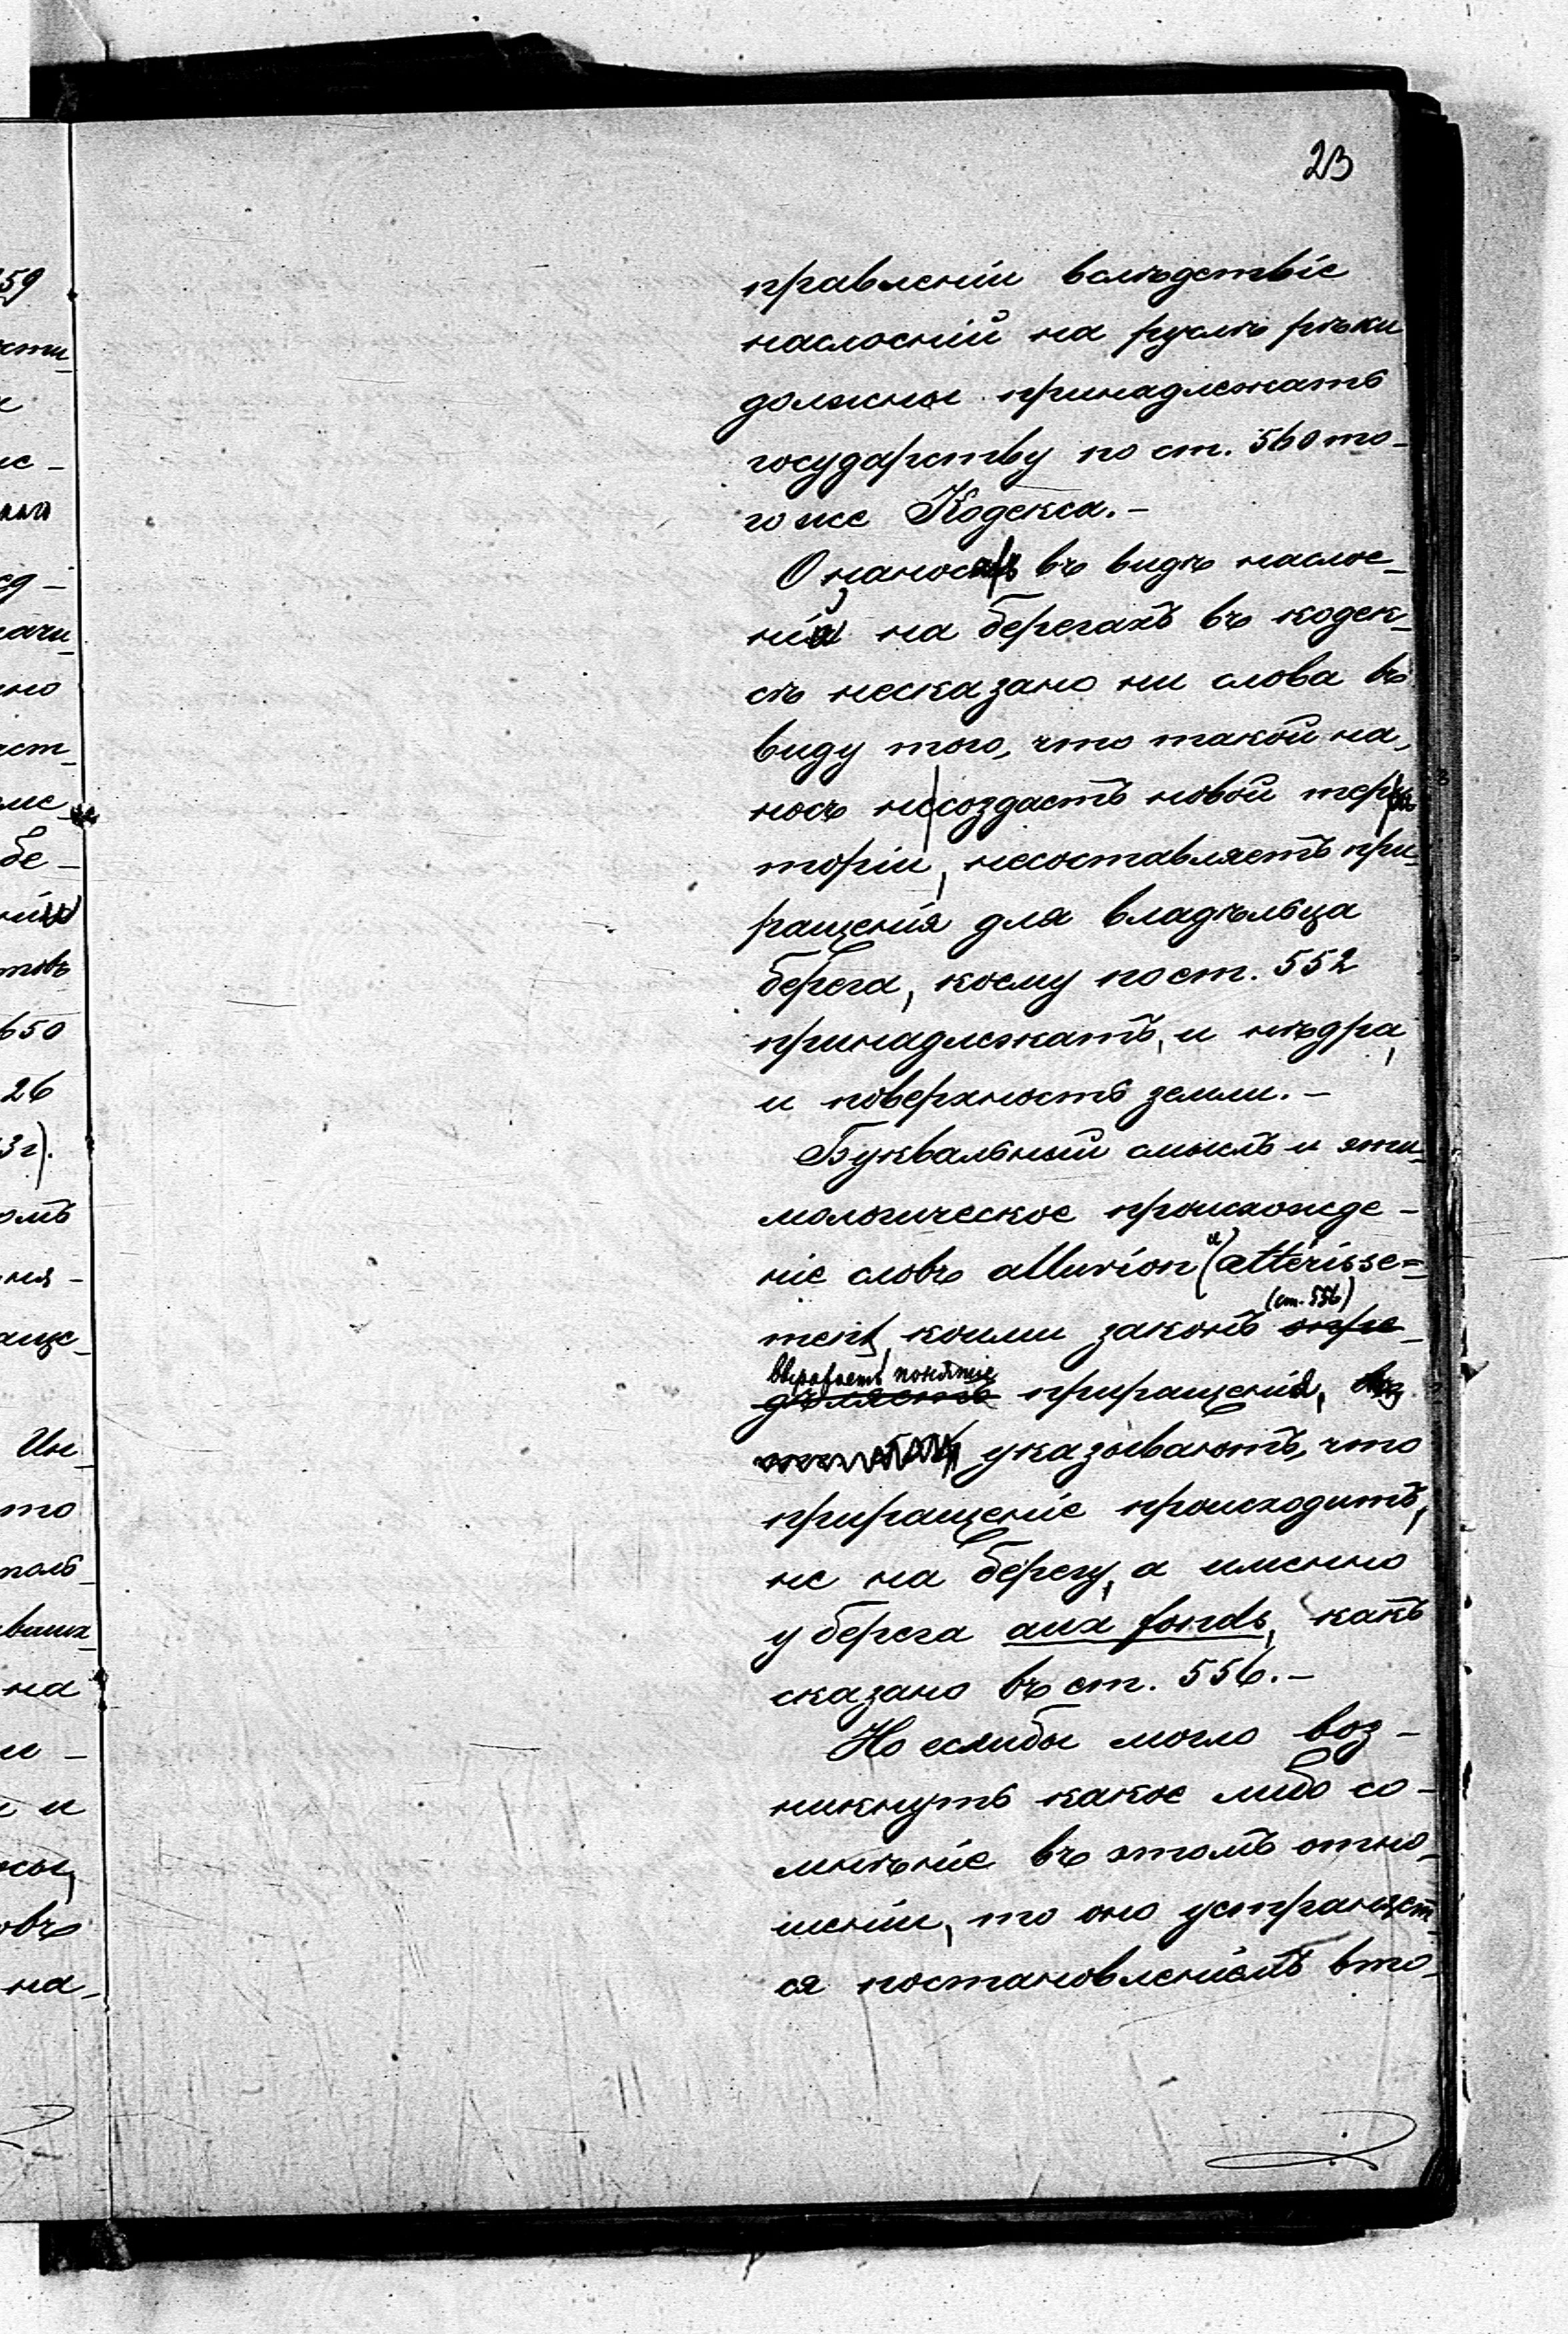 23
правленіи вслѣдствіе
наслоеній на руслѣ рѣки
должны принадлежать
государству по ст. 560 то-
го же Кодекса.-
О наносахъ въ видѣ наслое-
ній на берегахъ въ кодек-
сѣ несказано ни слова въ
виду того, что такой на-
носъ не создастъ новой терри
торіи, несоставляетъ при-
ращенія для владѣльца
берега, коему по ст. 552
принадлежатъ, и нѣдра,
и поверхность земли.-
Буквальный смыслъ и эти-
мологическое происхожде-
ніе словъ alluvion и attérisse=
(ст. 556)
ment, коими законъ опре-
выражаетъ понятіе
дѣляетъ приращенія,
указываютъ, что
приращеніе происходитъ,
не на берегу, а именно
у берега aux fonds, какъ
сказано въ ст. 556.-
Но еслибы могло воз-
никнуть какое либо со-
мнѣніе въ этомъ отно-
шеніи, то оно устраняет-
ся постановленіемъ вто-
59
650
26
3г).
Ин-
то
на
и
на-